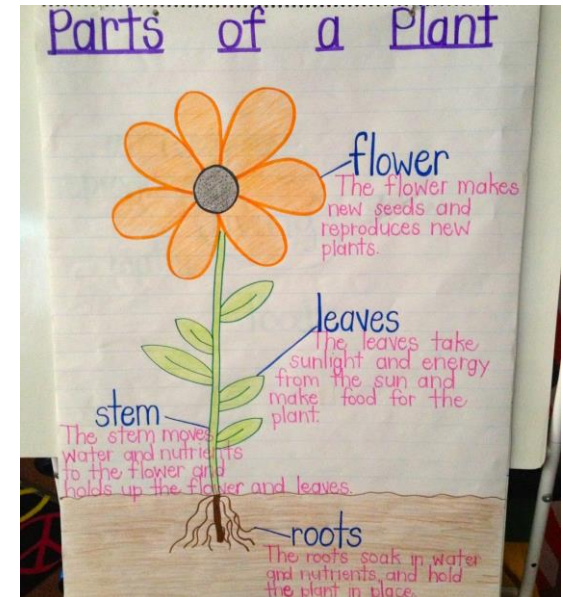 Parts of a Plant
flower
The flower makes
new seeds and
reproduces new
plants.
leaves
The leaves take
sunlight and energy
from the sun and
make food for the
plant.
stem
The stem moves
water and nutrients
to the flower and
holds up the flower and leaves.
roots
The roots soak in water
and nutrients, and hold
the plant in place.